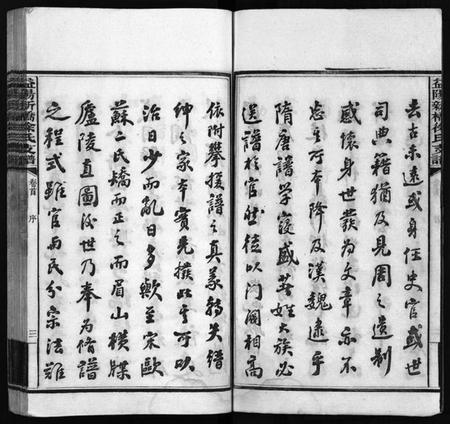 益陽新橋徐氏支譜
去古未遠或身任史官或世
司典籍猶及見周之遺制
感懷身世發為文章亦不
忘其所本降及漢魏迄乎
隋唐譜學寖盛著姓大族必
送譜於官然徒以門閥相高
依附攀援譜之真義轉失縉
紳之家本實先撥此其所以
治日少而亂日多歟至宋歐
蘇二氏矯而正之而眉山橫牒
廬陵直圖後世乃奉為脩譜
之程式雖官民分宗法雖
益陽新橋徐氏支譜
卷首
序
三